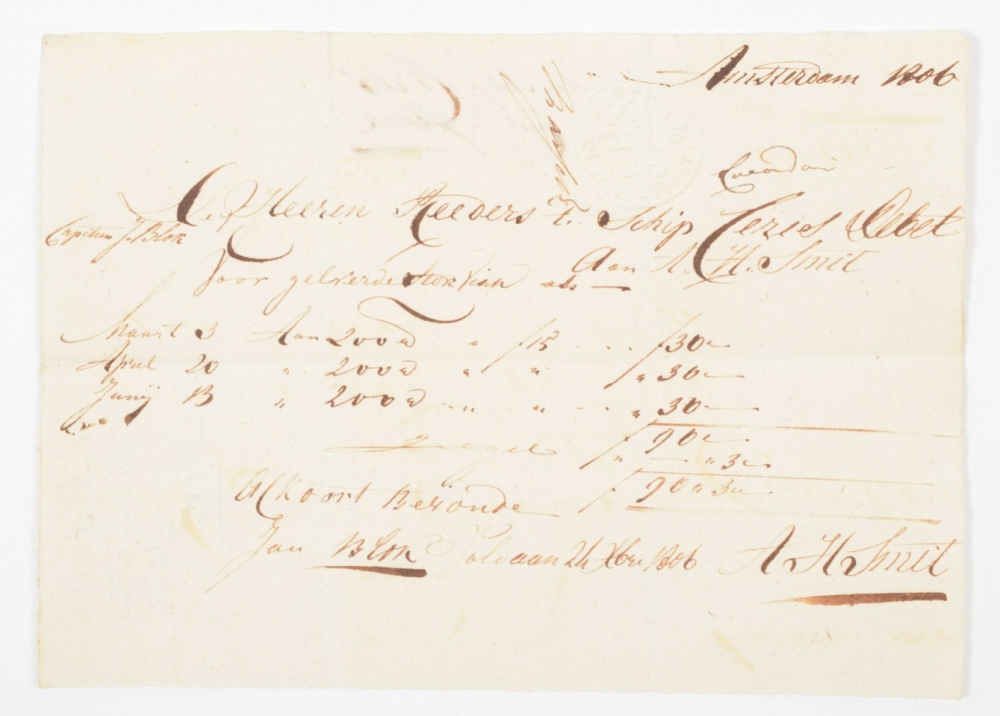 Amsterdam 1806
De Heeren Reeders v. t. Schip Ceres Debet
Capitein J. Blok
Aan A. H. Smit
Voor geleverde Stokvisch als
Maart 3 Aan 200 lb " f 15 - - f 30 "
April 20 " 200 lb " " " 30 "
Junij 13 " 200 lb " " - - " 30
f 90 "
" — " 3 "
f 90 " 3 "
Ackoort Bevonde
Jan Blok Voldaan 24 Xbr 1806 A. H. Smit